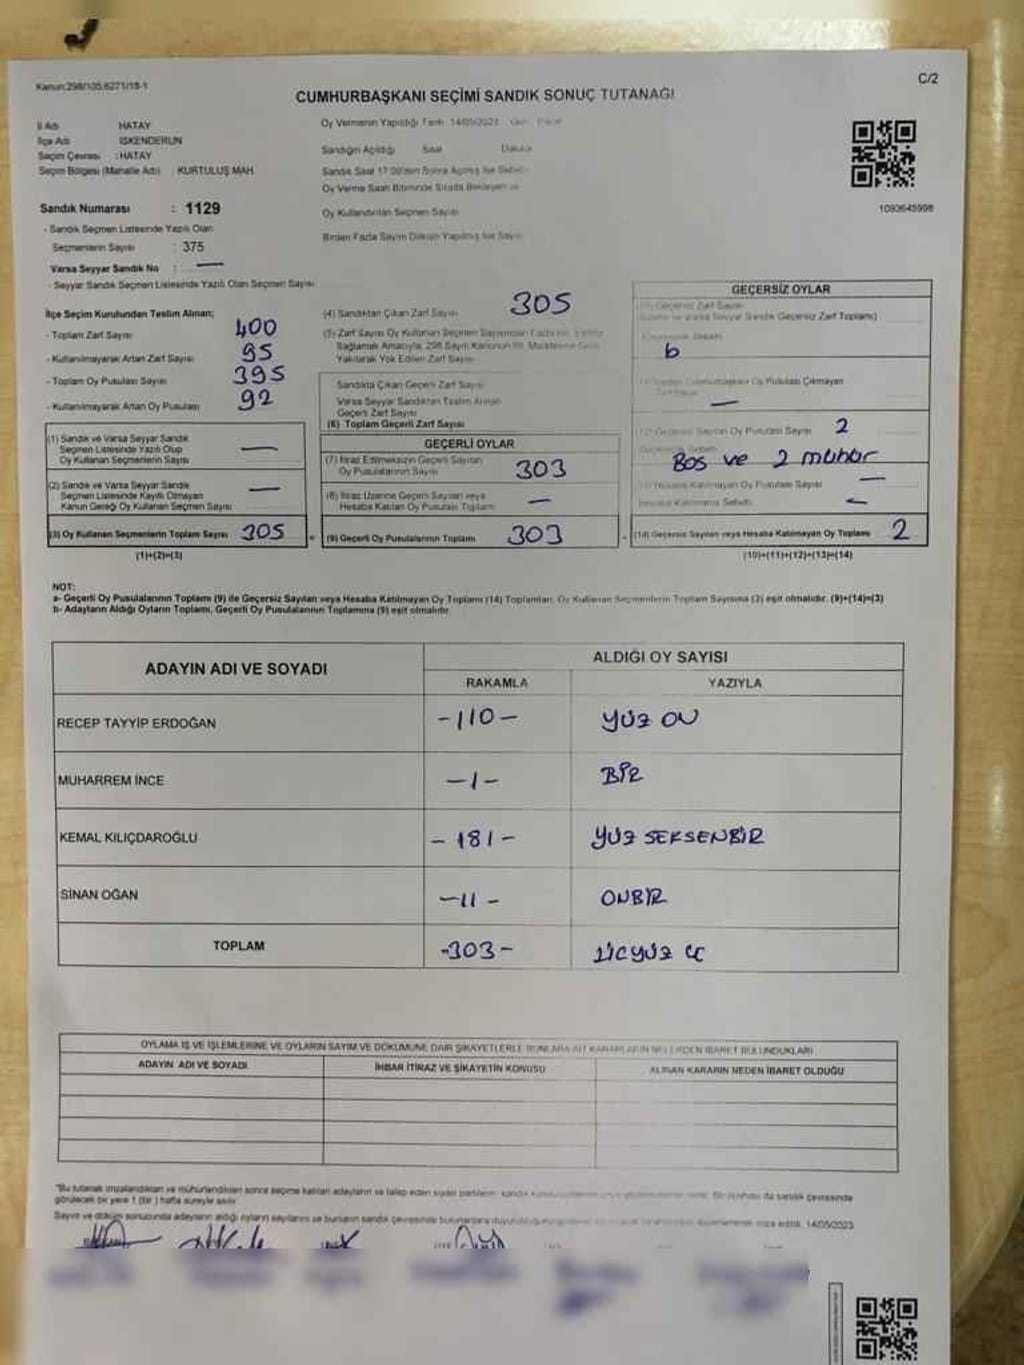 Kanun:298/105,6271/18-1
C/2
CUMHURBAŞKANI SEÇİMİ SANDIK SONUÇ TUTANAĞI
İl Adı HATAY
İlçe Adı İSKENDERUN
Seçim Çevresi : HATAY
Seçim Bölgesi (Mahalle Adı) : KURTULUŞ MAH.
Oy Vermenin Yapıldığı Tarih 14/05/2023 Gün Pazar
Sandığın Açıldığı Saat Dakika
Sandık Saat 17:00'den Sonra Açılmış İse Sebebi
Oy Verme Saati Bitiminde Sırada Bekleyen ve
Oy Kullandırılan Seçmen Sayısı
Birden Fazla Sayım Döküm Yapılmış İse Sayısı
1093645998
Sandık Numarası : 1129
- Sandık Seçmen Listesinde Yazılı Olan
Seçmenlerin Sayısı : 375
Varsa Seyyar Sandık No : —
- Seyyar Sandık Seçmen Listesinde Yazılı Olan Seçmen Sayısı
İlçe Seçim Kurulundan Teslim Alınan;
- Toplam Zarf Sayısı 400
- Kullanılmayarak Artan Zarf Sayısı 95
- Toplam Oy Pusulası Sayısı 395
- Kullanılmayarak Artan Oy Pusulası 92
(1) Sandık ve Varsa Seyyar Sandık
Seçmen Listesinde Yazılı Olup
Oy Kullanan Seçmenlerin Sayısı —
(2) Sandık ve Varsa Seyyar Sandık
Seçmen Listesinde Kayıtlı Olmayan
Kanun Gereği Oy Kullanan Seçmen Sayısı —
(3) Oy Kullanan Seçmenlerin Toplam Sayısı 305
(1)+(2)=(3)
(4) Sandıktan Çıkan Zarf Sayısı 305
(5) Zarf Sayısı Oy Kullanan Seçmen Sayısından Fazla ise,
Sağlamak Amacıyla, 298 Sayılı Kanunun 98. Maddesine Göre
Yakılarak Yok Edilen Zarf Sayısı
Sandıkta Çıkan Geçerli Zarf Sayısı
Varsa Seyyar Sandıktan Teslim Alınan
Geçerli Zarf Sayısı
(6) Toplam Geçerli Zarf Sayısı
GEÇERLİ OYLAR
(7) İtiraz Edilmeksizin Geçerli Sayılan
Oy Pusulalarının Sayısı 303
(8) İtiraz Üzerine Geçerli Sayılan veya
Hesaba Katılan Oy Pusulası Toplamı —
(9) Geçerli Oy Pusulalarının Toplamı 303
GEÇERSİZ OYLAR
(10) Geçersiz Zarf Sayısı
b
Oy Pusulası Çıkmayan
—
(12) Geçersiz Sayılan Oy Pusulası Sayısı 2
Boş ve 2 mühür
(13) Hesaba Katılmayan Oy Pusulası Sayısı —
Hesaba Katılmama Sebebi —
(14) Geçersiz Sayılan veya Hesaba Katılmayan Oy Toplamı 2
(10)+(11)+(12)+(13)=(14)
NOT:
a- Geçerli Oy Pusulalarının Toplamı (9) ile Geçersiz Sayılan veya Hesaba Katılmayan Oy Toplamı (14) Toplamları, Oy Kullanan Seçmenlerin Toplam Sayısına (3) eşit olmalıdır. (9)+(14)=(3)
b- Adayların Aldığı Oyların Toplamı, Geçerli Oy Pusulalarının Toplamına (9) eşit olmalıdır.
ADAYIN ADI VE SOYADI
ALDIĞI OY SAYISI
RAKAMLA YAZIYLA
RECEP TAYYİP ERDOĞAN -110- YÜZ ON
MUHARREM İNCE -1- BİR
KEMAL KILIÇDAROĞLU -181- YÜZ SEKSENBİR
SİNAN OĞAN -11- ONBİR
TOPLAM -303- ÜÇYÜZ ÜÇ
OYLAMA İŞ VE İŞLEMLERİNE VE OYLARIN SAYIM VE DÖKÜMÜNE DAİR ŞİKAYETLERLE BUNLARA AİT KARARLARIN NELERDEN İBARET BULUNDUKLARI
ADAYIN ADI VE SOYADI İHBAR İTİRAZ VE ŞİKAYETİN KONUSU ALINAN KARARIN NEDEN İBARET OLDUĞU
"Bu tutanak imzalandıktan ve mühürlendikten sonra seçime katılan adayların ve talep eden siyasi partilerin
görülecek bir yere 1 (bir) hafta süreyle asılır.
Sayım ve döküm sonucunda adayların aldığı oyların sayılarını ve bunların sandık çevresinde 14/05/2023